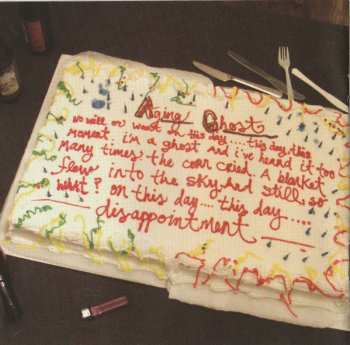 Aging Ghost
so well or worst by this day.... this day, this
moment. i'm a ghost and i've heard it too
many times. the corn cried. A blanket
flew into the sky. And still, so
what? on this day... this day.....
disappointment